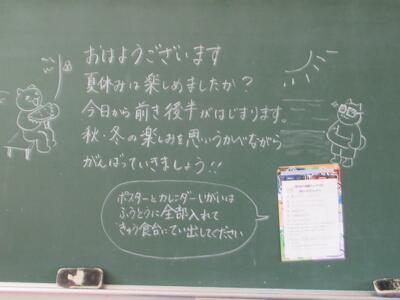 おはようございます
夏休みは楽しめましたか?
今日から前き後半がはじまります。
秋・冬の楽しみを思いうかべながら
がんばっていきましょう!!
ポスターとカレンダーいがいは
ふうとうに全部入れて
きゅう食台にてい出してください